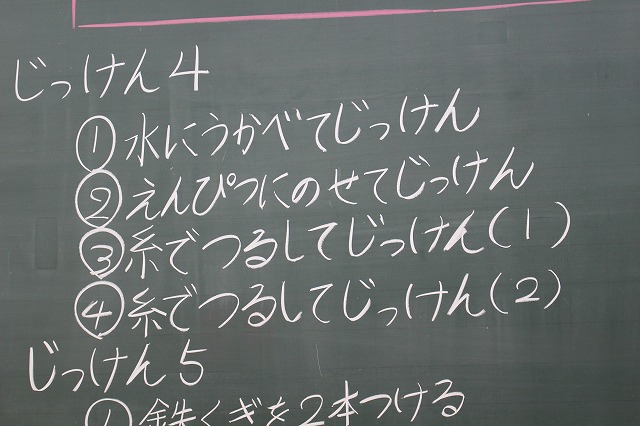 じっけん4
①水にうかべてじっけん
②えんぴつにのせてじっけん
③糸でつるしてじっけん(1)
④糸でつるしてじっけん(2)
じっけん5
①鉄くぎを2本つける